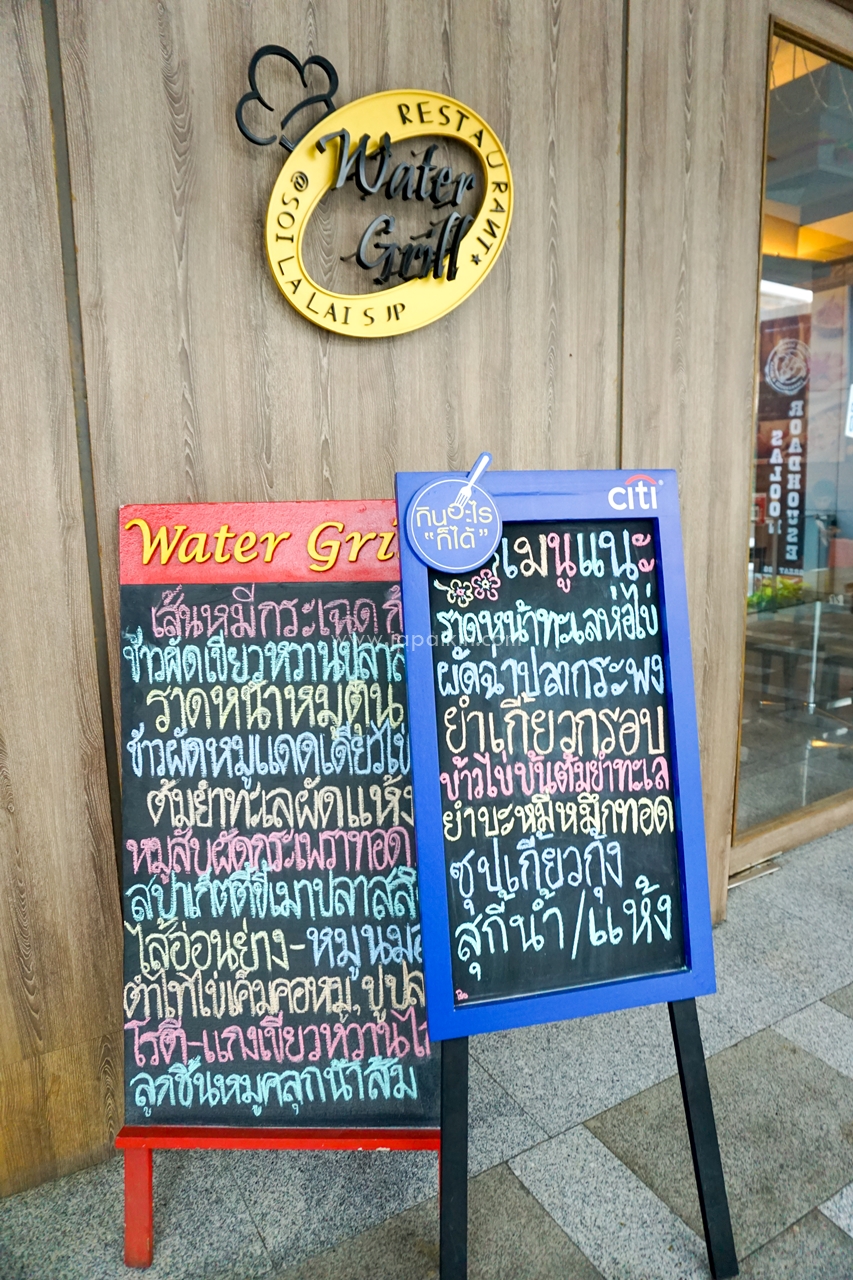 RESTAURANT
Water
Grill
@SOI LALAI SJP
ROADHOUSE
Water Gri
citi
กินอะไร
"ก็ได้"
เมนูแนะ
ราดหน้าทะเลห่อไข่
ผัดฉาปลากระพง
ยำเกี๊ยวกรอบ
ข้าวไข่ข้นต้มยำทะเล
ยำบะหมี่หมึกทอด
ซุปเกี๊ยวกุ้ง
สุกี้น้ำ/แห้ง
เส้นหมี่กระเฉด
ข้าวผัดเขียวหวานปลาส
ราดหน้าหมูตุ๋น
ข้าวผัดหมูแดดเดียวไข่
ต้มยำทะเลผัดแห้ง
หมูสับผัดกระเพราทอด
สปาเก็ตตี้ขี้เมาปลาสลิ
ไส้อ่อนย่าง-หมูนม
ตำไทไข่เค็มคอหมู,ปูปล
โรตี-แกงเขียวหวานไ
ลูกชิ้นหมูคลุกน้ำส้ม